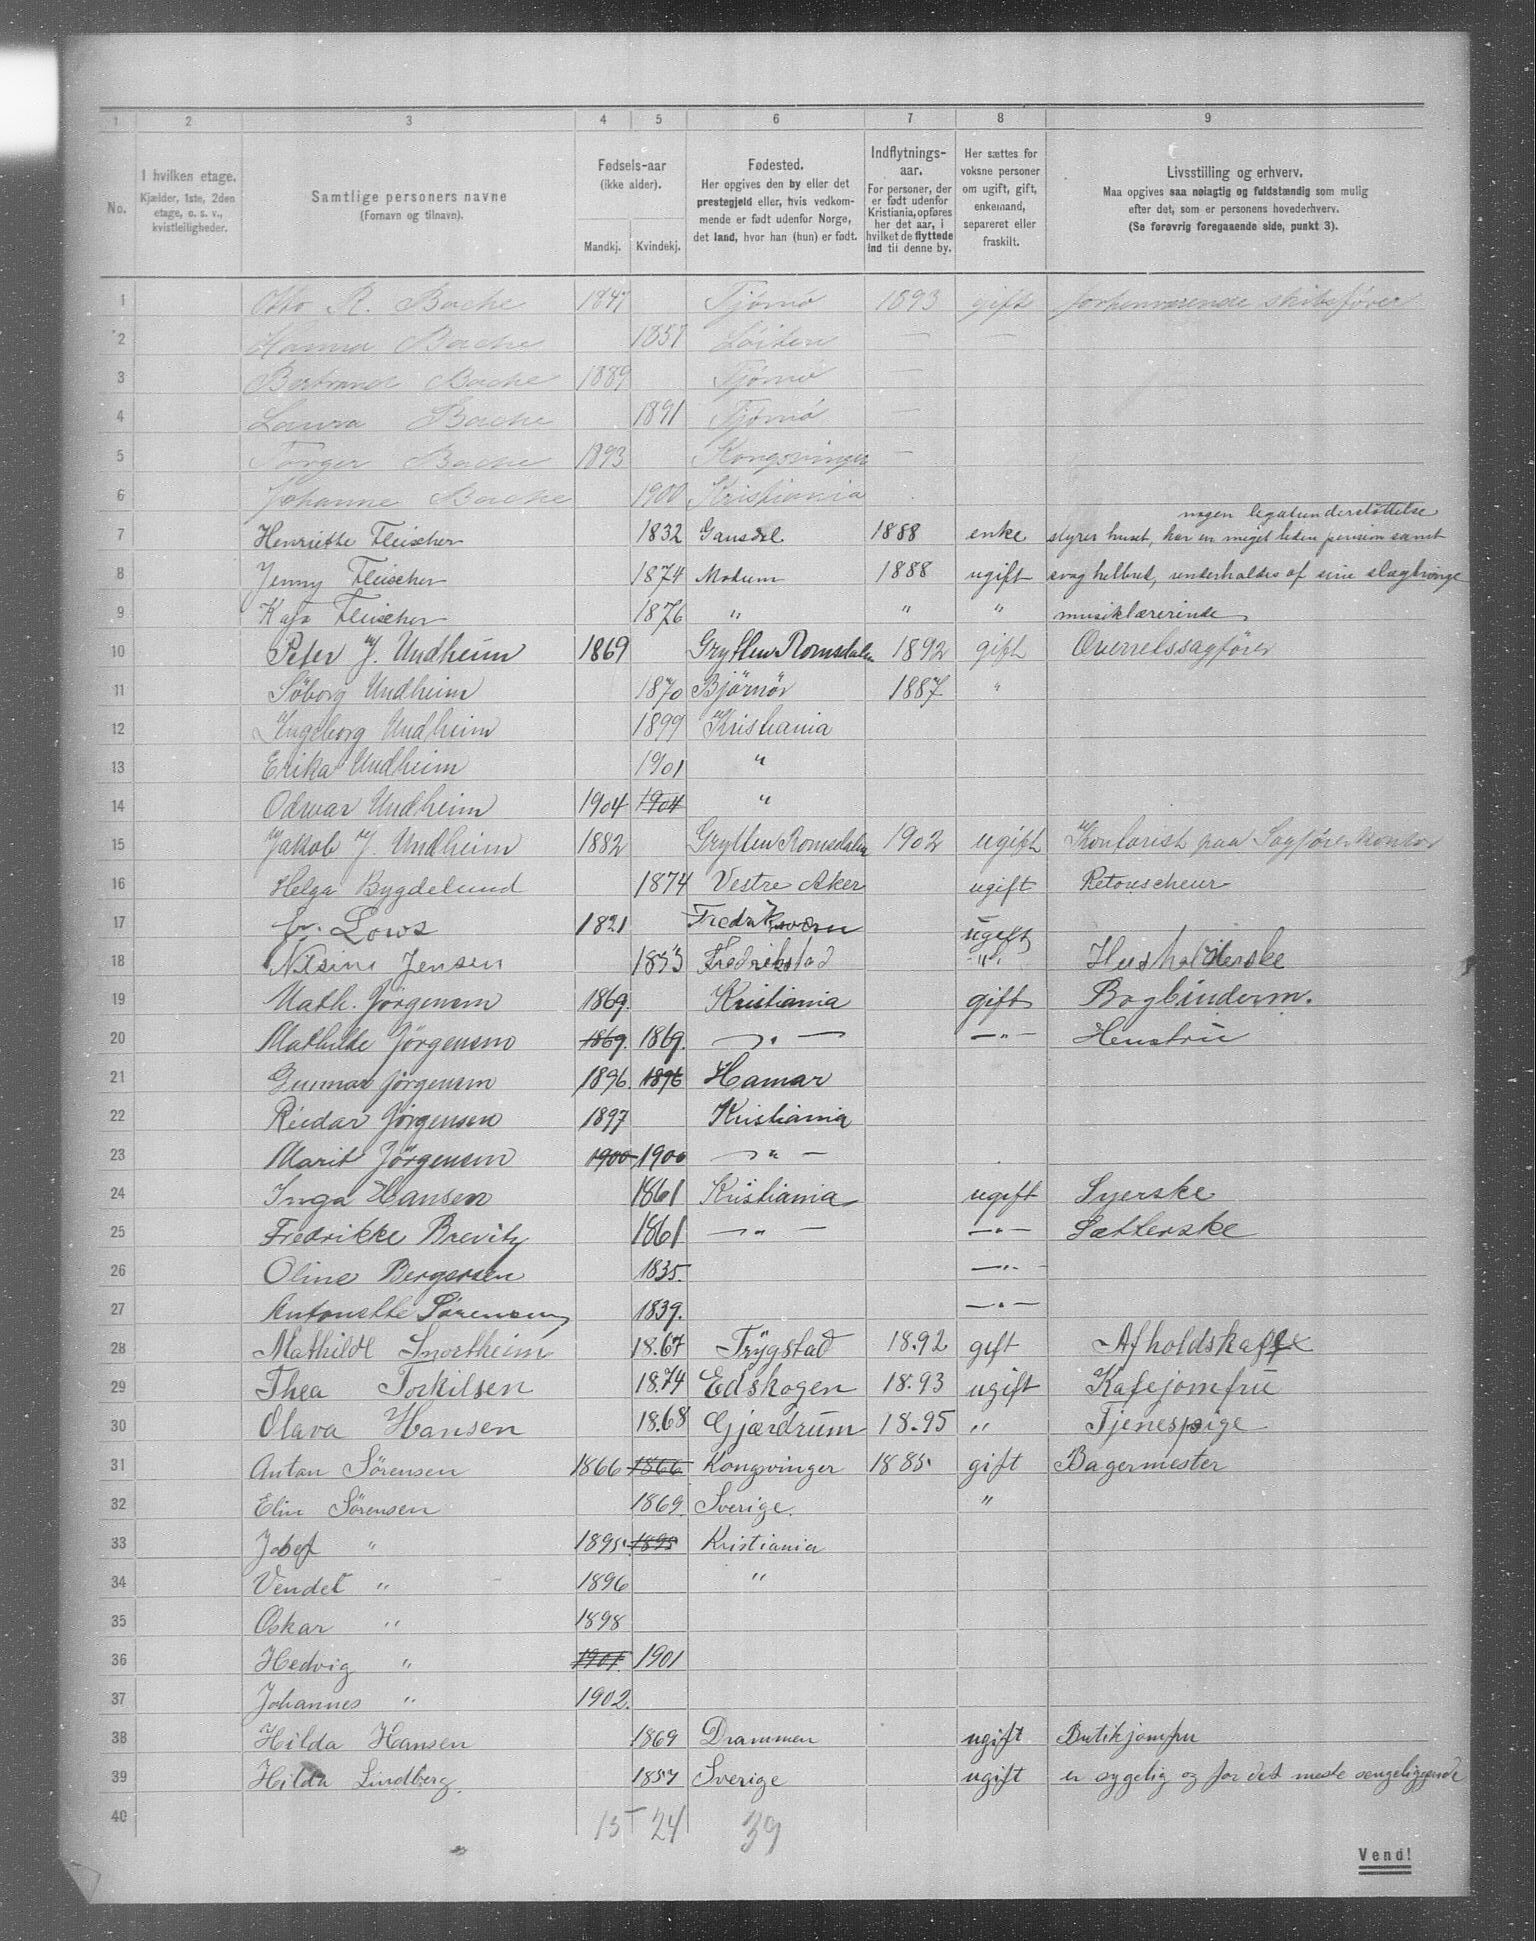 1 2 3 4 5 6 7 8 9
No.
I hvilken etage.
Kjælder, 1ste, 2den etage, o. s. v., kvistleiligheder.
Samtlige personers navne
(Fornavn og tilnavn).
Fødsels-aar
(ikke alder).
Mandkj. Kvindekj.
Fødested.
Her opgives den by eller det prestegjeld eller, hvis vedkommende er født udenfor Norge, det land, hvor han (hun) er født.
Indflytningsaar.
For personer, der er født udenfor Kristiania, opføres her det aar, i hvilket de flyttede ind til denne by.
Her sættes for voksne personer om ugift, gift, enkemand, separeret eller fraskilt.
Livsstilling og erhverv.
Maa opgives saa nøiagtig og fuldstændig som mulig efter det, som er personens hovederhverv.
(Se forøvrig foregaaende side, punkt 3).
1 Otto R. Bache 1847 Tjømø 1893 gift forhenværende skibsfører
2 Hanna Bache 1857 Løiten — —
3 Bertrand Bache 1889 Tjømø —
4 Laura Bache 1891 Tjømø —
5 Torger Bache 1893 Kongsvinger —
6 Johanne Bache 1900 Kristiania
nogen legatunderstøttelse
7 Henriette Fleischer 1832 Gausdal 1888 enke styrer huset, har en meget liden pension samt
8 Jenny Fleischer 1874 Modum 1888 ugift svag helbred, underholdes af sine slægtninge
9 Kaja Fleischer 1876 " " " musiklærerinde
10 Peter J. Undheim 1869 Grytten Romsdalen 1892 gift Overretssagfører
11 Søborg Undheim 1870 Bjørnør 1887 "
12 Ingeborg Undheim 1899 Kristiania
13 Erika Undheim 1901 "
14 Odvar Undheim 1904 1904 "
15 Jakob J. Undheim 1882 Grytten Romsdalen 1902 ugift Kontorist paa Sagførerkontor
16 Helga Bygdelund 1874 Vestre Aker ugift Retouscheur
17 fr. Lows 1821 Fredriksværn ugift
18 Nilsine Jensen 1853 Fredrikstad " Husholderske
19 Math. Jörgensen 1869. Kristiania gift Bogbinderm.
20 Mathilde Jörgensen 1869. 1869. — " — — " — Hustru
21 Gunnar Jörgensen 1896. 1896 Hamar
22 Reidar Jörgensen 1897 Kristiania
23 Marit Jörgensen 1900 1900 — " —
24 Inga Hansen 1861 Kristiania ugift Syerske
25 Fredrikke Brevitz 1861 — " — — " — Sætterske
26 Oline Bergersen 1835. — " —
27 Antonette Sörensen 1839. — " —
28 Mathilde Snortheim 18.67 Trÿgstad 18.92 gift Afholdskaffe
29 Thea Torkilsen 18.74 Edskogen 18.93 ugift Kafejomfru
30 Olava Hansen 18.68 Gjærdrum 18.95 " Tjenespige
31 Anton Sørensen 1866 1866 Kongsvinger 1885. gift Bagermester
32 Elin Sørensen 1869. Sverige. "
33 Josef " 1895. 1895 Kristiania
34 Vendet " 1896 "
35 Oskar " 1898
36 Hedvig " 1901. 1901
37 Johannes " 1902.
38 Hilda Hansen 1869 Drammen ugift Butikjomfru
39 Hilda Lindberg. 1857 Sverige ugift er sygelig og for det meste sengeliggende
40 15 24 39
Vend!